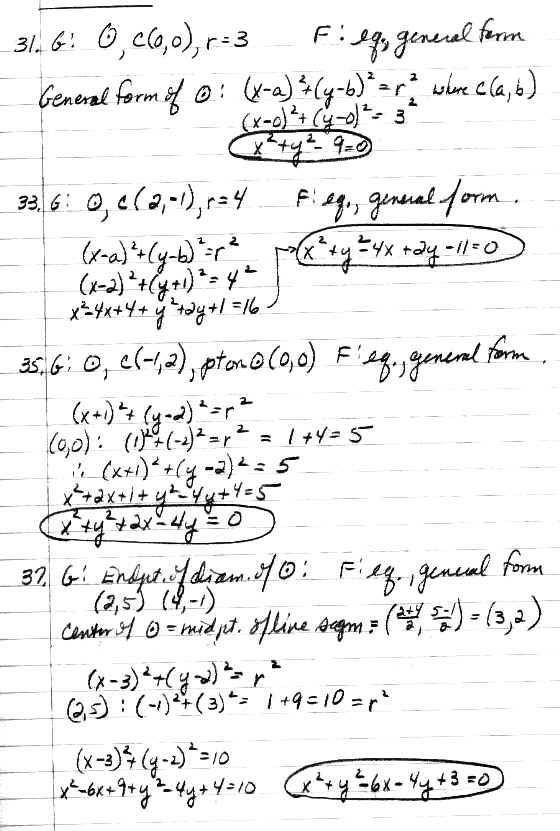 31. G: ⊙, C(0,0), r=3 F: eq., general form
General form of ⊙: (x-a)²+(y-b)²=r² where C(a,b)
(x-0)²+(y-0)²=3²
x²+y²-9=0
33. G: ⊙, C(2,-1), r=4 F: eq., general form.
(x-a)²+(y-b)²=r²
(x-2)²+(y+1)²=4²
x²-4x+4+y²+2y+1=16
x²+y²-4x+2y-11=0
35. G: ⊙, C(-1,2), pt on ⊙ (0,0) F: eq., general form.
(x+1)²+(y-2)²=r²
(0,0): (1)²+(-2)²=r² = 1+4=5
∴ (x+1)²+(y-2)²=5
x²+2x+1+y²-4y+4=5
x²+y²+2x-4y=0
37. G: Endpt. of diam. of ⊙: F: eq., general form
(2,5) (4,-1)
Center of ⊙ = midpt. of line segm = (2+4/2, 5-1/2) = (3,2)
(x-3)²+(y-2)²=r²
(2,5): (-1)²+(3)²= 1+9=10=r²
(x-3)²+(y-2)²=10
x²-6x+9+y²-4y+4=10 x²+y²-6x-4y+3=0